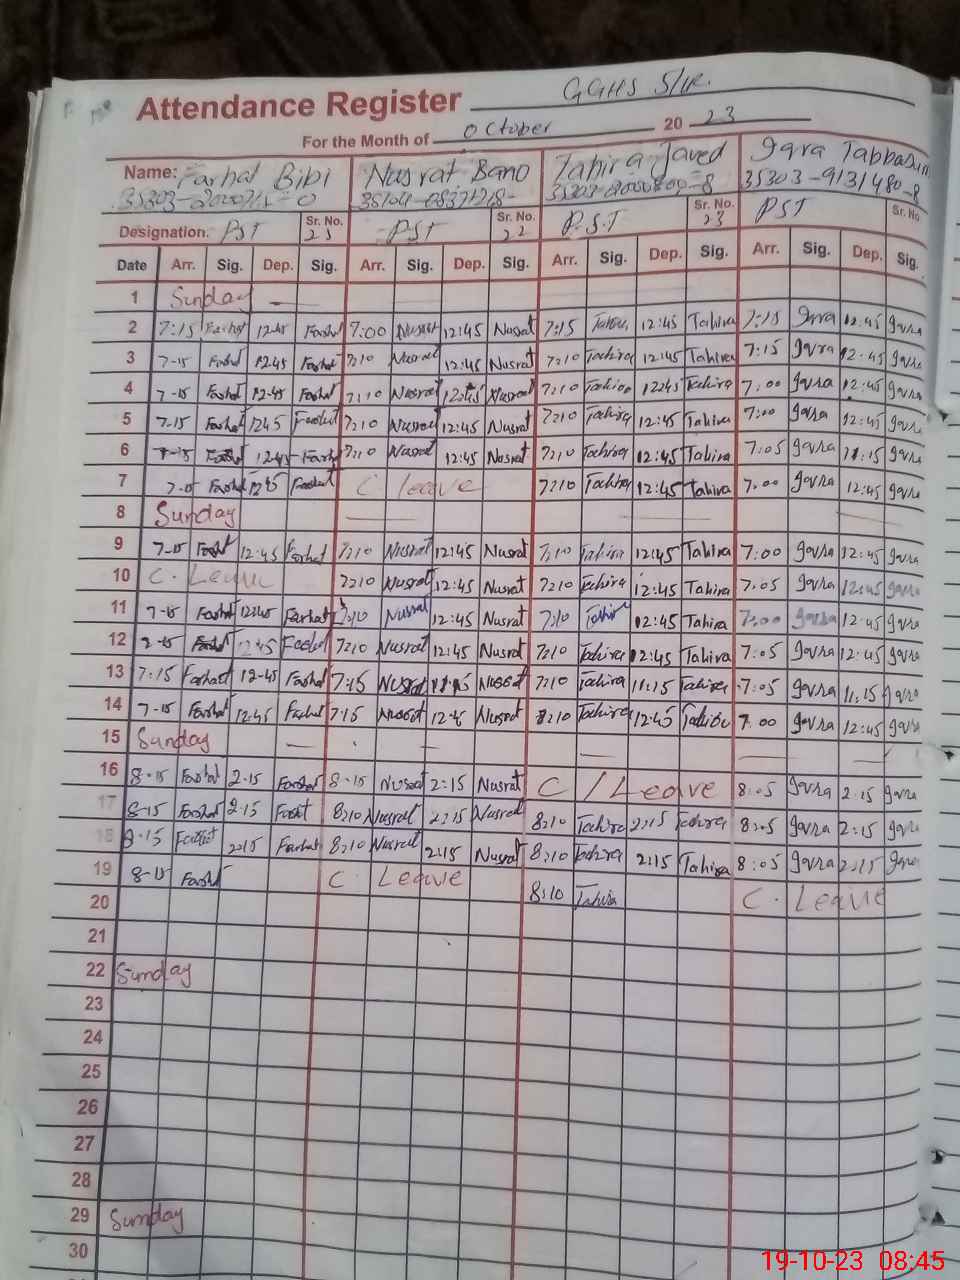 Attendance Register GGHS S/W.
For the Month of October 20 23
Name: Farhat Bibi Nusrat Bano Tahira Javed Iqra Tabbasum
35303-9131480-8
Designation. PST Sr. No. PST Sr. No. 22 P.S.T Sr. No. 23 PST Sr. No
Date Arr. Sig. Dep. Sig. Arr. Sig. Dep. Sig. Arr. Sig. Dep. Sig. Arr. Sig. Dep. Sig.
1 Sunday
2 7:15 Farhat 12:45 Farhat 7:00 Nusrat 12:45 Nusrat 7:15 Tahira 12:45 Tahira 7:15 Iqra 12:45 Iqra
3 7-15 Farhat 12.45 Farhat 7:10 Nusrat 12:45 Nusrat 7:10 Tahira 12:45 Tahira 7:15 Iqra 12.45 Iqra
4 7-15 Farhat 12.45 Farhat 7:10 Nusrat 12:45 Nusrat 7:10 Tahira 12:45 Tahira 7:00 Iqra 12:45 Iqra
5 7-15 Farhat 1245 Farhat 7:10 Nusrat 12:45 Nusrat 7:10 Tahira 12:45 Tahira 7:00 Iqra 12:45 Iqra
6 7-15 Farhat 12.45 Farhat 7:10 Nusrat 12:45 Nusrat 7:10 Tahira 12:45 Tahira 7:05 Iqra 11:15 Iqra
7 Farhat 12.45 Farhat C. leave 7:10 Tahira 12:45 Tahira 7.00 Iqra 12:45 Iqra
8 Sunday
9 7-15 Farhat 12:45 Farhat 7:10 Nusrat 12:45 Nusrat 7:10 Tahira 12:45 Tahira 7:00 Iqra 12:45 Iqra
10 C. Leave 7:10 Nusrat 12:45 Nusrat 7:10 Tahira 12:45 Tahira 7:05 Iqra 12:45 Iqra
11 7-15 Farhat 12:45 Farhat 7:10 Nusrat 12:45 Nusrat 7:10 Tahira 12:45 Tahira 7:00 Iqra 12:45 Iqra
12 Farhat 12:45 Farhat 7:10 Nusrat 12:45 Nusrat 7:10 Tahira 12:45 Tahira 7:05 Iqra 12:45 Iqra
13 7:15 Farhat 12-45 Farhat 7:15 Nusrat 11:15 Nusrat 7:10 Tahira 11:15 Tahira 7:05 Iqra 11:15 Iqra
14 7-15 Farhat 12:45 Farhat 7:15 Nusrat 12:45 Nusrat Tahira 12:45 Tahira 7:00 Iqra 12:45 Iqra
15 Sunday
16 8-15 Farhat 2-15 Farhat 8-15 Nusrat 2:15 Nusrat C / Leave 8:05 Iqra 2:15 Iqra
17 8-15 Farhat 2-15 Farhat 8:10 Nusrat 2:15 Nusrat 8:10 Tahira 2:15 Tahira 8:05 Iqra 2:15 Iqra
18 8-15 Farhat 2:15 Farhat 8:10 Nusrat 2:15 Nusrat 8:10 Tahira 2:15 Tahira 8:05 Iqra 2:15 Iqra
19 8-15 Farhat C. Leave 8:10 Tahira C. Leave
20
21
22 Sunday
23
24
25
26
27
28
29 Sunday
30
19-10-23 08:45